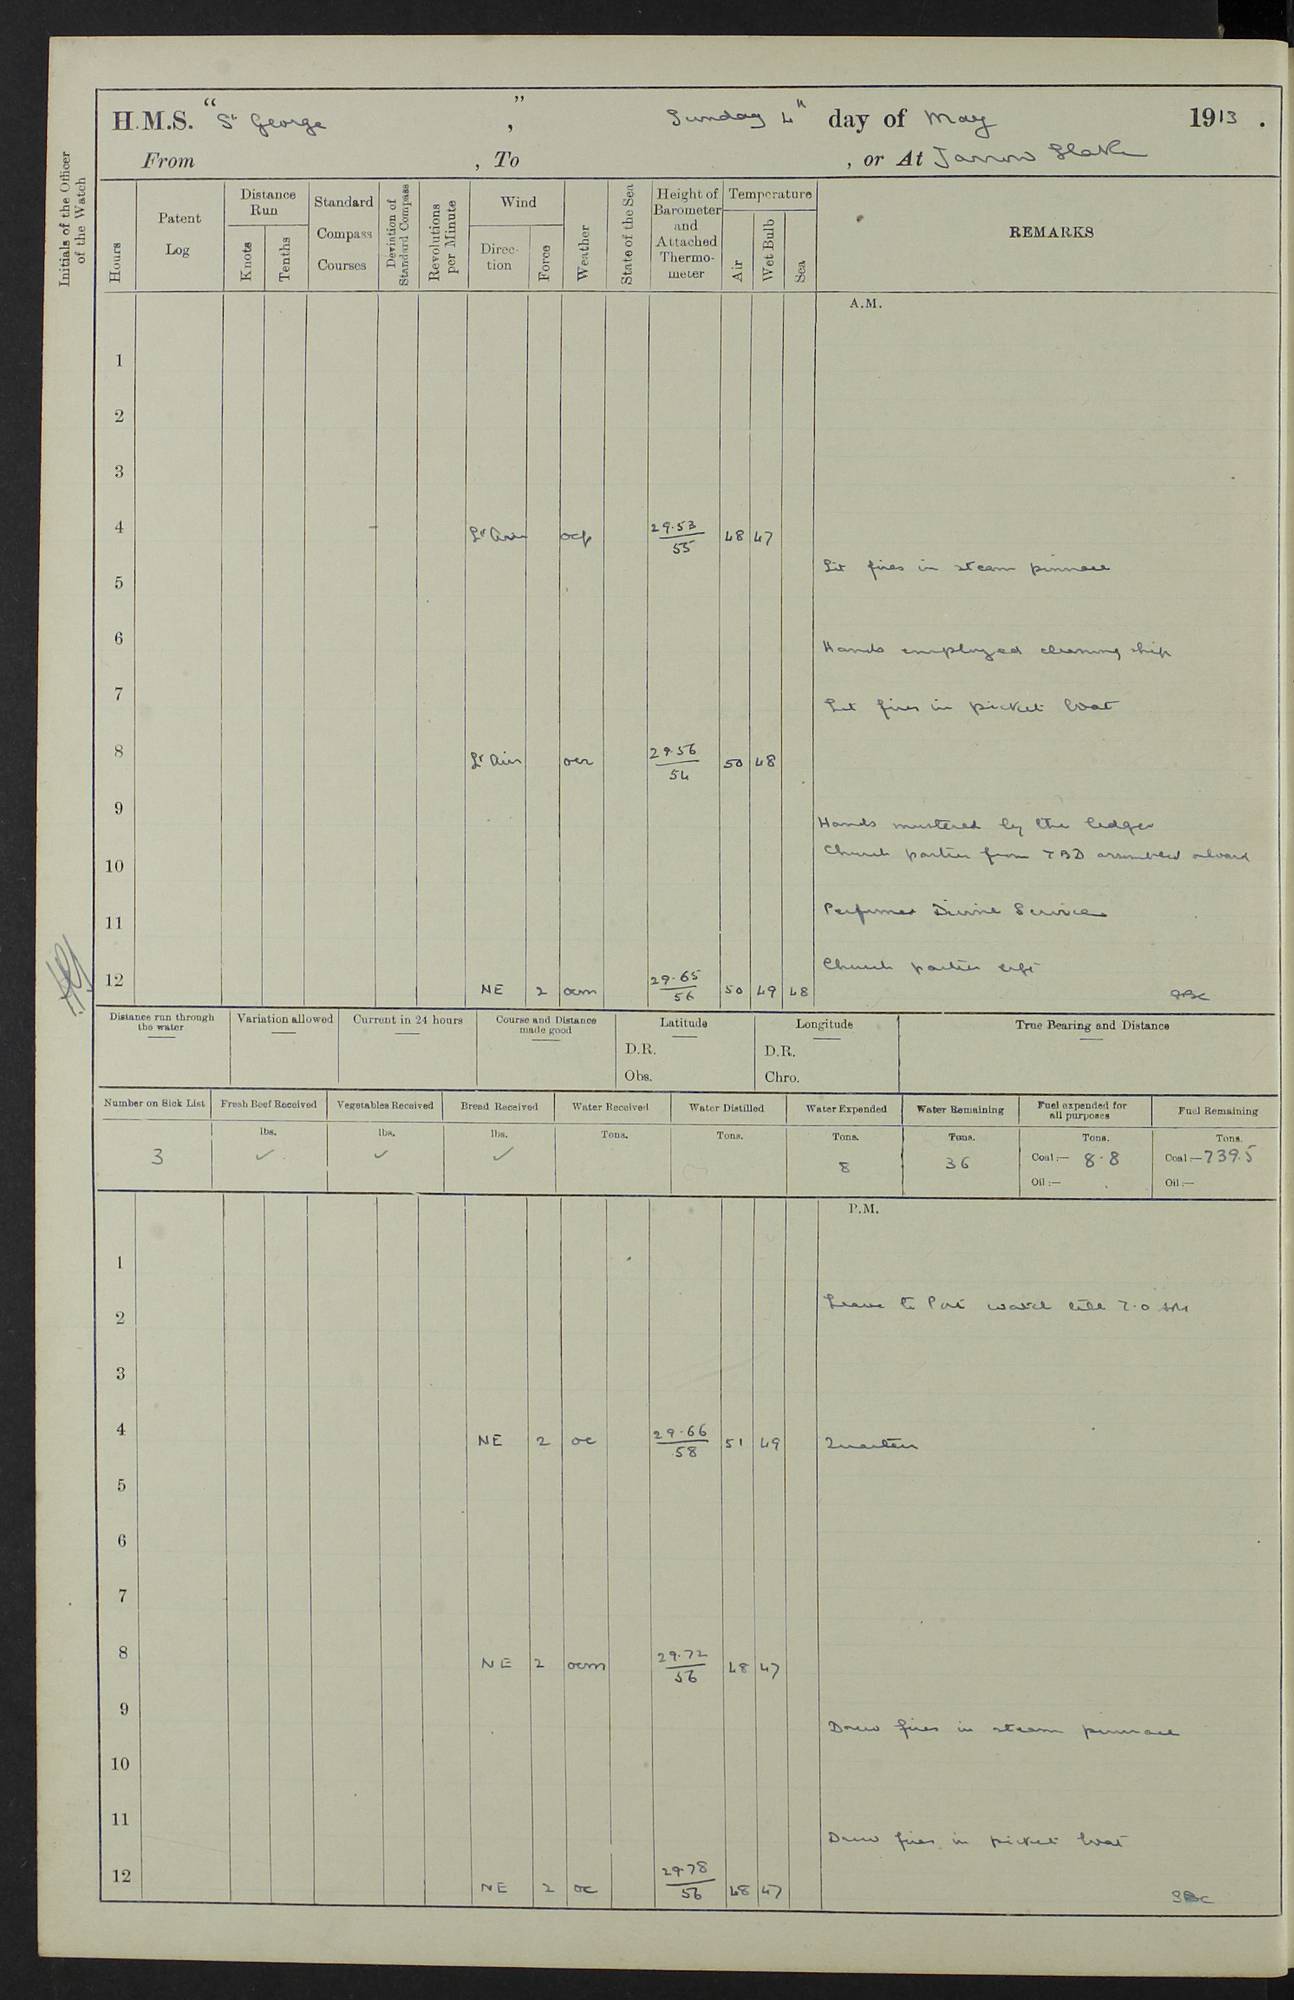 H.M.S. "St George", Sunday 4th day of May 1913.
From , To , or At Jarrow Slake
Initials of the Officer of the Watch
Hours
Patent Log
Distance Run
Knots
Tenths
Standard Compass Courses
Deviation of Standard Compass
Revolutions per Minute
Wind
Direction
Force
Weather
State of the Sea
Height of Barometer and Attached Thermometer
Temperature
Air
Wet Bulb
Sea
REMARKS
A.M.
1
2
3
4 Lt airs ocp 29.53/55 48 47
Lit fires in steam pinnace
5
6
Hands employed cleaning ship
7
Lit fires in picket boat
8 Lt airs ocr 29.56/54 50 48
9
Hands mustered by the ledger
Church parties from TBD assembled onboard
10
Performed Divine Service
11
Church parties left
12 NE 2 ocm 29.65/56 50 49 48
Distance run through the water
Variation allowed
Current in 24 hours
Course and Distance made good
Latitude
D.R.
Obs.
Longitude
D.R.
Chro.
True Bearing and Distance
Number on Sick List
Fresh Beef Received
Vegetables Received
Bread Received
Water Received
Water Distilled
Water Expended
Water Remaining
Fuel expended for all purposes
Fuel Remaining
lbs. lbs. lbs. Tons. Tons. Tons. Tons. Tons. Tons.
3 ✓ ✓ ✓ 8 36 Coal:— 8.8 Coal:—739.5
Oil:— Oil:—
P.M.
1
Leave to Port watch till 7.0 AM
2
3
4 NE 2 oc 29.66/58 51 49 Quarters
5
6
7
8 NE 2 ocm 29.72/56 48 47
9
Drew fires in steam pinnace
10
11
Drew fires in picket boat
12 NE 2 oc 29.78/56 48 47